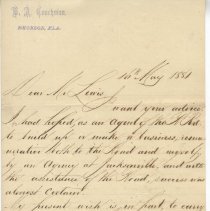 16th May 1881
Dear Mr Lewis,
I want your advice
I had hoped, as an Agent of
to build up or make a business, remu-
both to the Road and myself
by an Agency at Jacksonville, and with
the assistance of the Road, success was
almost Certain
My present wish is in part to carry